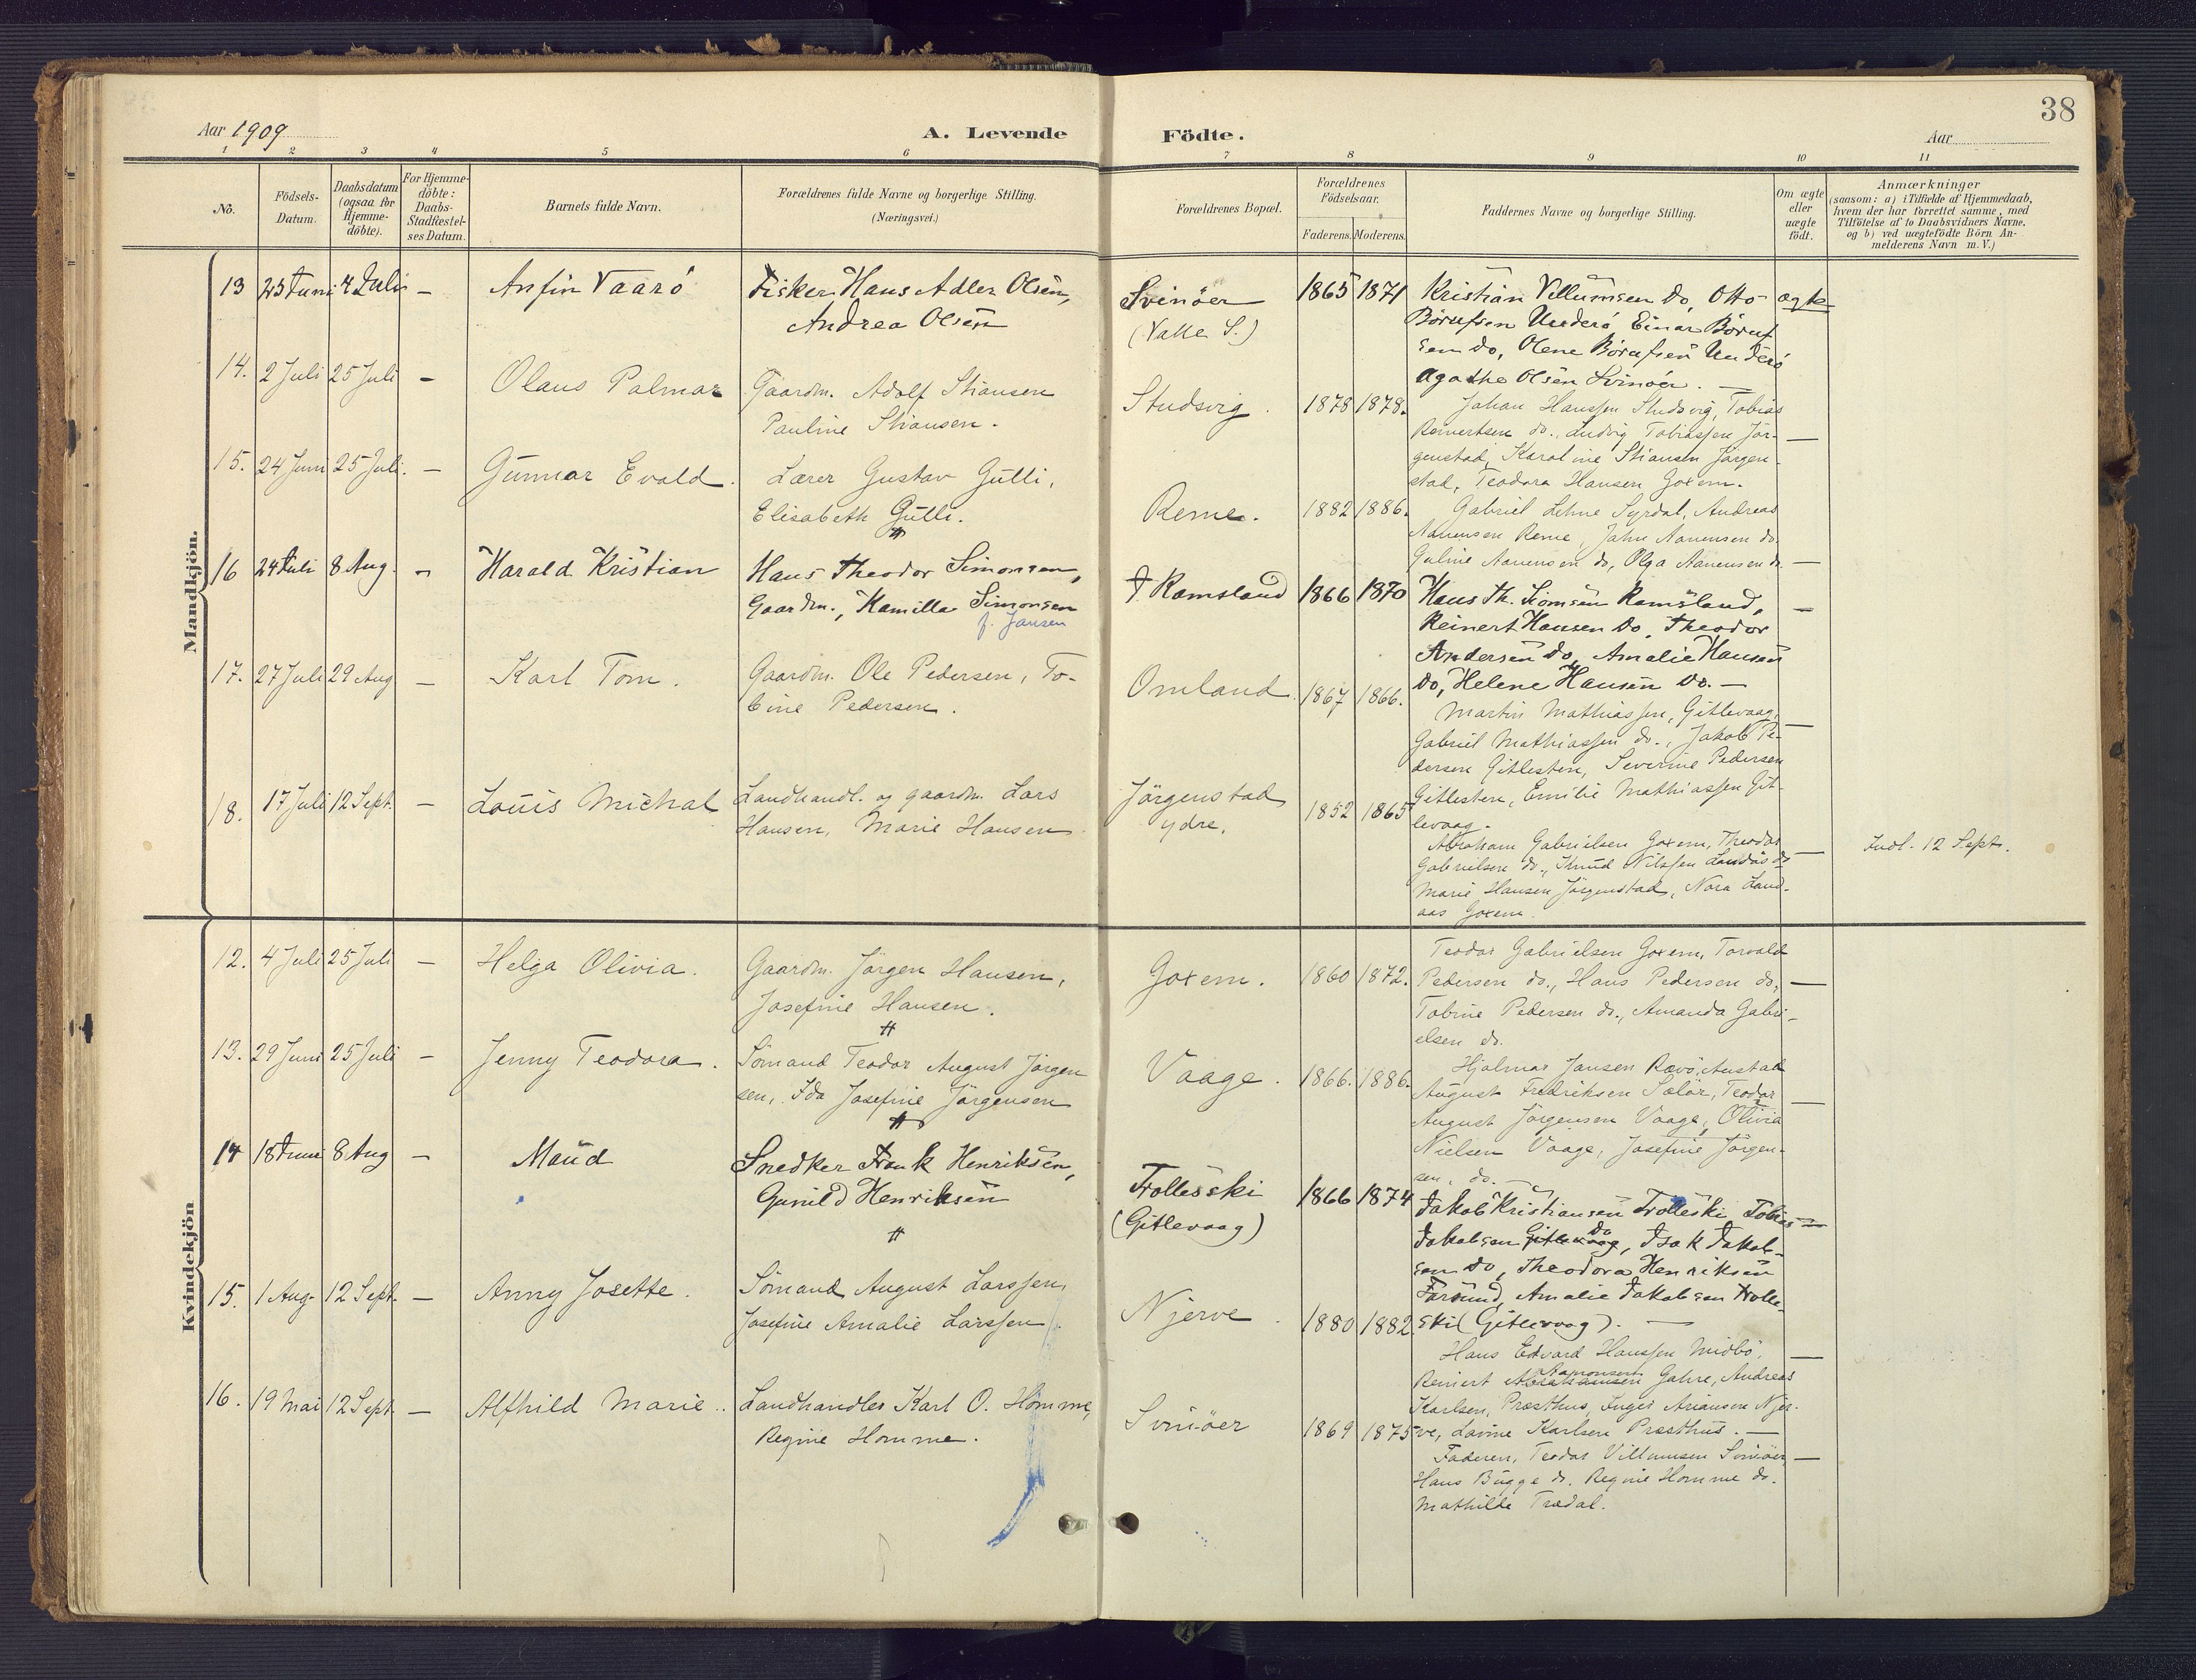 38
Aar 1909
A. Levende
Födte.
Aar
1 2 3 4 5 6 7 8 9 10 11
No.
Födsels-
Datum.
Daabsdatum
(ogsaa for
Hjemme-
döbte).
For Hjemme-
döbte:
Daabs-
Stadfæstel-
ses Datum.
Barnets fulde Navn.
Forældrenes fulde Navne og borgerlige Stilling.
(Næringsvei.)
Forældrenes Bopæl.
Forældrenes
Födselsaar.
Faderens. Moderens.
Faddernes Navne og borgerlige Stilling.
Om ægte
eller
uægte
födt.
Anmærkninger
(saasom: a) i Tilfælde af Hjemmedaab,
hvem der har forrettet samme, med
Tilföielse af to Daabsvidners Navne,
og b) ved uægtefödte Börn An-
melderens Navn m. V.)
Mandkjön.
13 23 Juni 4 Juli – Anfin Vaarö
Fisker Hans Adler Olsen,
Andrea Olsen
Svinöer
(Valle S.)
1865 1871
Kristian Villumsen do, Otto
Börufsen Underö, Einar Böruf
sen do, Olene Börufsen Underö
Agathe Olsen Svinöer. –
ægte
14. 2 Juli 25 Juli – Olaus Palmar
Gaardm. Adolf Stiansen
Pauline Stiansen.
Studsvig.
1878 1878.
Johan Hanssen Studsvig, Tobias
Reinertsen do., Ludvig Tobiassen Jör-
genstad, Karoline Stiansen Jörgen-
stad, Teodora Hansen Goxem.
–
15. 24 Juni 25 Juli. – Gunnar Evald.
Lærer Gustav Gulli,
Elisabeth Gulli.
Reme.
1882 1886.
Gabriel Lehne Syrdal, Andreas
Aanensen Reme, John Aanensen do.
Guline Aanensen do, Olga Aanensen do.
–
16 24 Juli 8 Aug. – Harald Kristian
Hans Theodor Simonsen,
Gaardm., Kamilla Simonsen
f. Jansen
Ramsland
1866 1870
Hans Th. Siomsen Ramsland,
Reinert Hansen do, Theodor
Andersen do, Amalie Hansen
do, Helene Hansen do. –
–
17. 27 Juli 29 Aug – Karl Tom.
Gaardm. Ole Pedersen, To-
bine Pedersen.
Omland.
1867 1866.
Martin Mathiassen, Gitlevaag,
Gabriel Mathiassen do., Jakob Pe-
dersen Gitlesten, Severine Pedersen
Gitlesten, Emilie Mathiassen Git-
levaag.
–
18. 17 Juli 12 Sept. – Louis Michal
Landhandl. og gaardm. Lars
Hansen, Marie Hansen
Jörgenstad
ydre.
1852 1865
Abraham Gabrielsen Goxem, Theodor
Gabrielsen do., Knud Nilssen Landås do
Marie Hansen Jörgenstad, Nora Land-
aas Goxem.
–
Indl. 12 Sept.
Kvindekjön
12. 4 Juli 25 Juli – Helga Olivia.
Gaardm. Jörgen Hansen,
Josefine Hansen.
Goxem.
1860 1872.
Teodor Gabrielsen Goxem, Torvald
Pedersen do., Hans Pedersen do,
Tobine Pedersen do., Amanda Gabri-
elsen do.
–
13. 29 Juni 25 Juli – Jenny Teodora.
Sömand Teodor August Jörgen
sen, Ida Josefine Jörgensen
Vaage.
1866. 1886.
Hjalmar Jansen Rævö, Austad
August Fredriksen Sælör, Teodor
August Jörgensen Vaage, Olivia
Nielsen Vaage, Josefine Jörgen-
sen, do. –
–
14 18 Juni 8 Aug – Maud
Snedker Frank Henriksen,
Gunild Henriksen
Trollesski
(Gitlevaag)
1866 1874
Jakob Kristiansen Trolleski Tobias
Jakobsen Gitlevaag do, Isak Jakob-
sen do, Theodora Henriksen
Farsund, Amalie Jakobsen Trolle-
ski (Gitlevaag). –
–
15. 1 Aug. 12 Sept. – Anny Josette.
Sömand August Larssen,
Josefine Amalie Larssen.
Njerve.
1880 1882
Hans Edvard Hanssen Midbö,
Reinert Aamonsen Gahre, Andreas
Karlsen, Præsthus, Inger Ariansen Njer-
ve, Lavine Karlsen Præsthus. –
–
16. 19 Mai 12 Sept. – Alfhild Marie.
Landhandler Karl O. Homme,
Regine Homme.
Svinöer
1869 1875
Faderen, Teodor Villumsen Svinöer,
Hans Bugge do. Regine Homme do.
Mathilde Trædal.
–